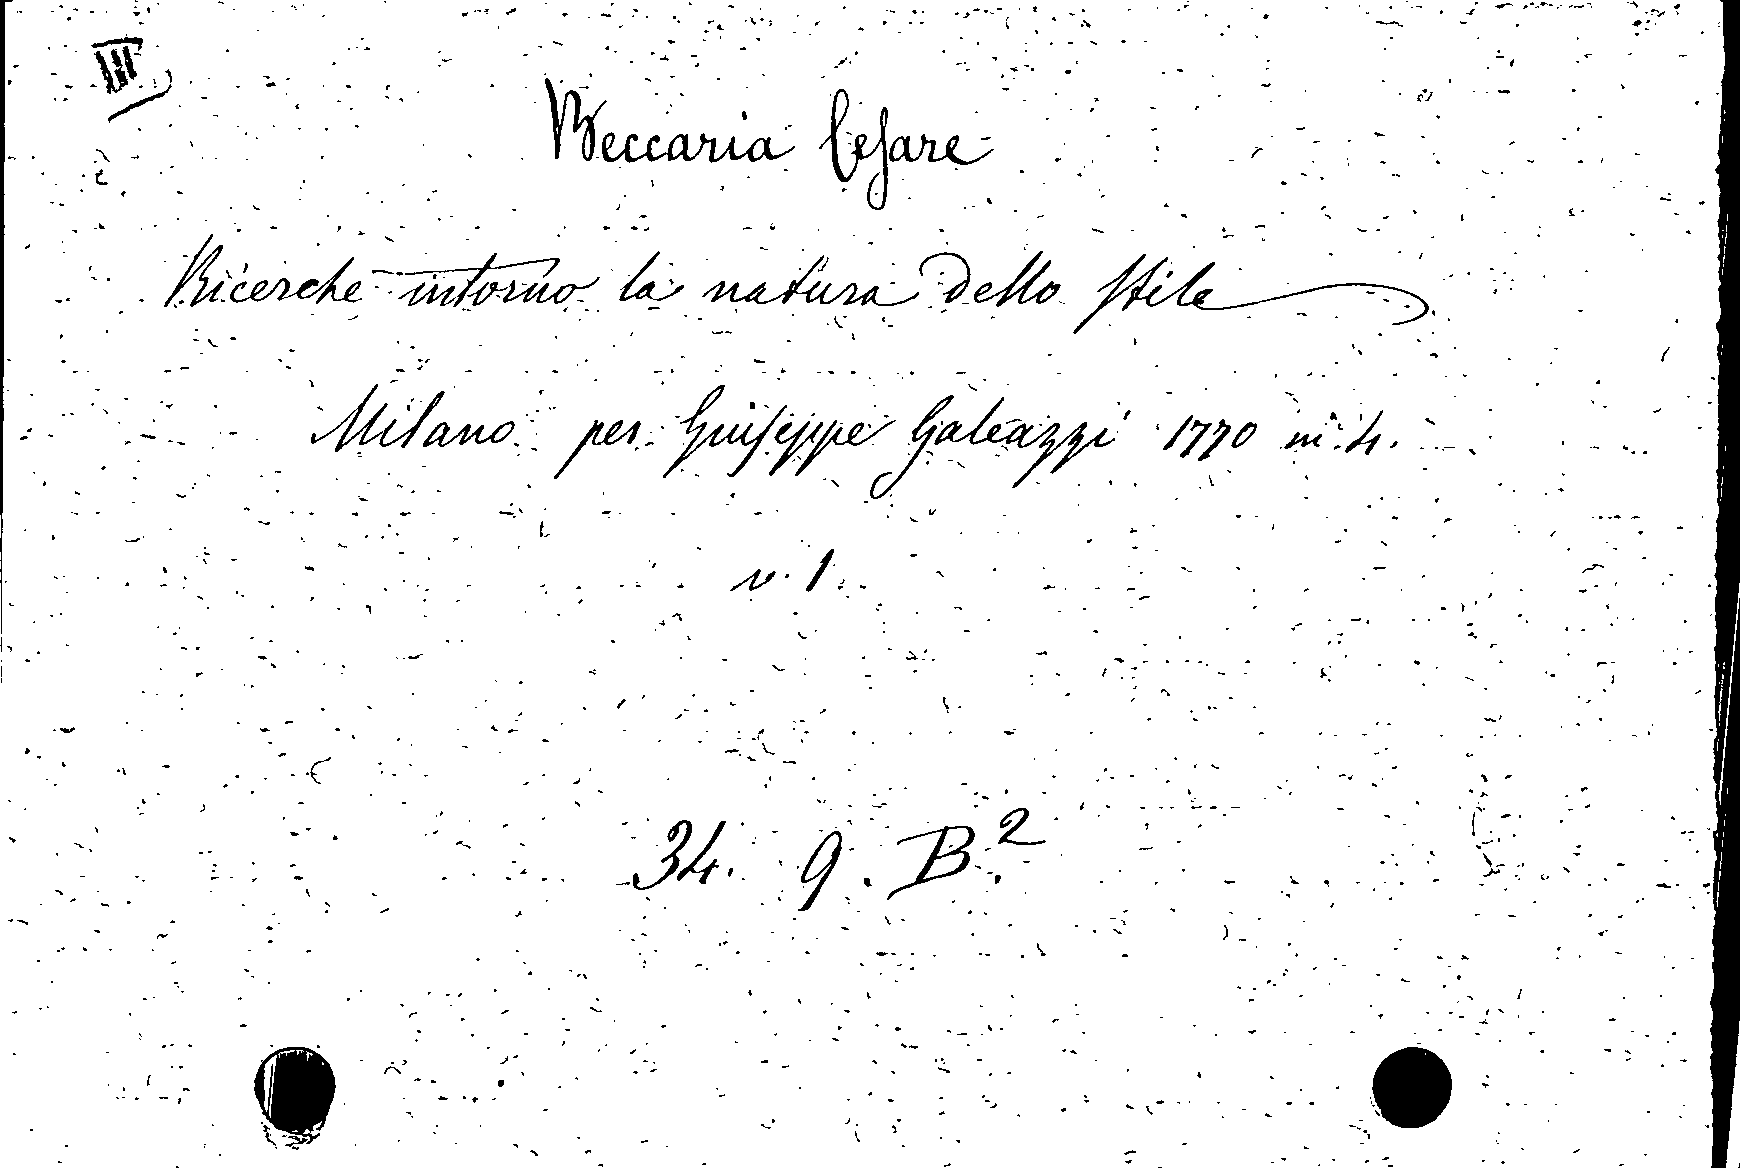 III
Beccaria Cesare
Ricerche intorno la natura dello Stile
Milano per Giuseppe Galeazzi 1770 in 4.
v. 1.
34. 9. B.²